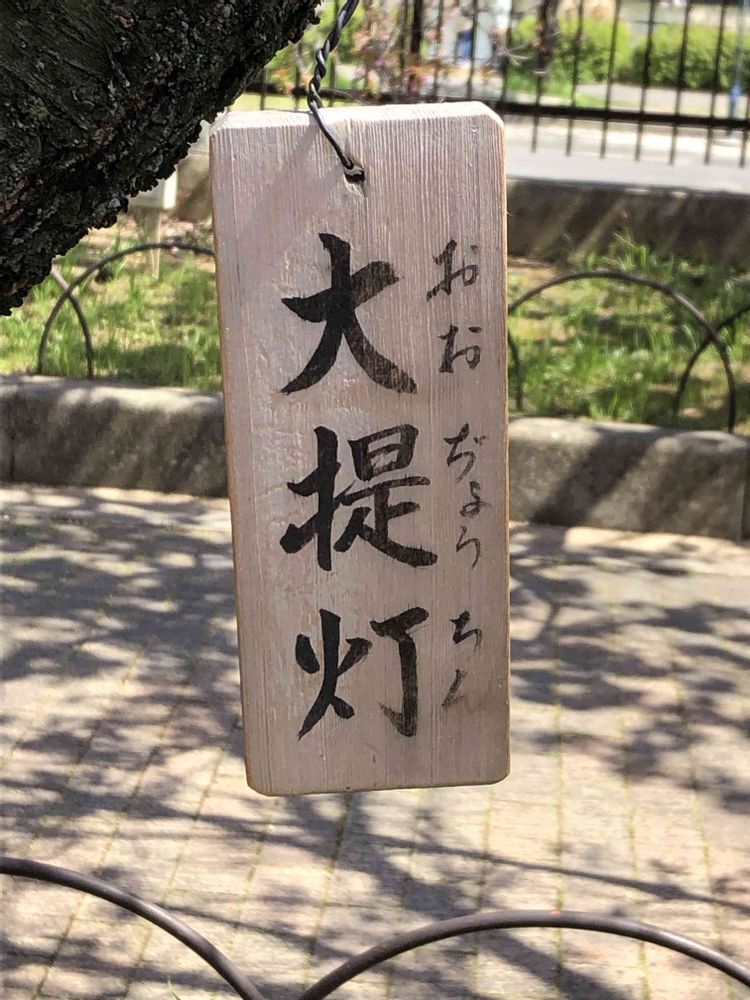 大提灯
おおぢょうちん